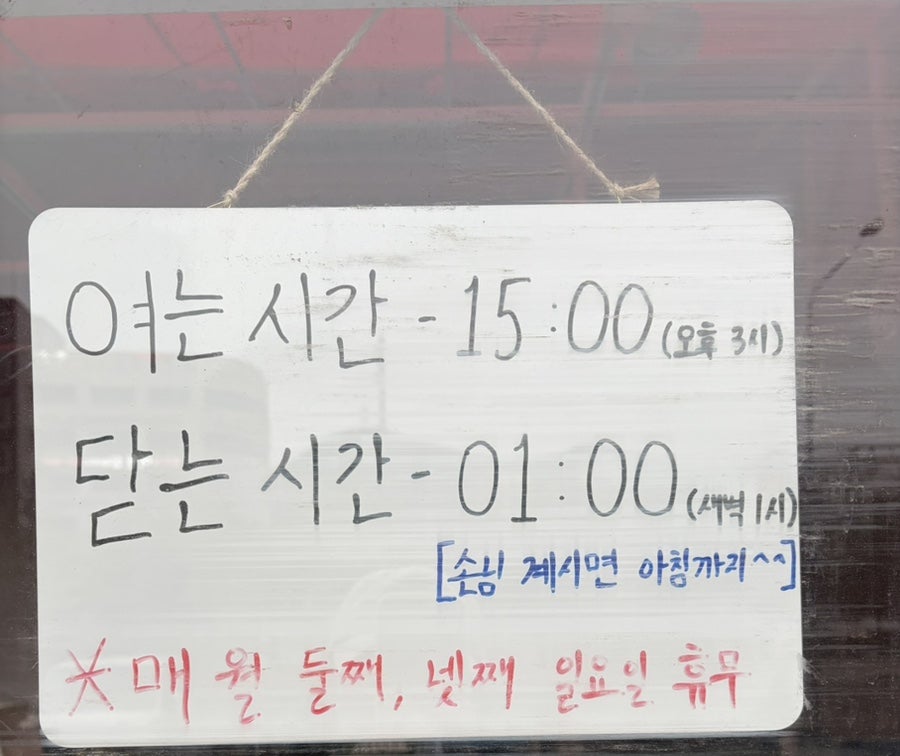 여는 시간 - 15:00 (오후 3시)
닫는 시간 - 01:00 (새벽 1시)
[손님 계시면 아침까지^^]
* 매월 둘째, 넷째 일요일 휴무